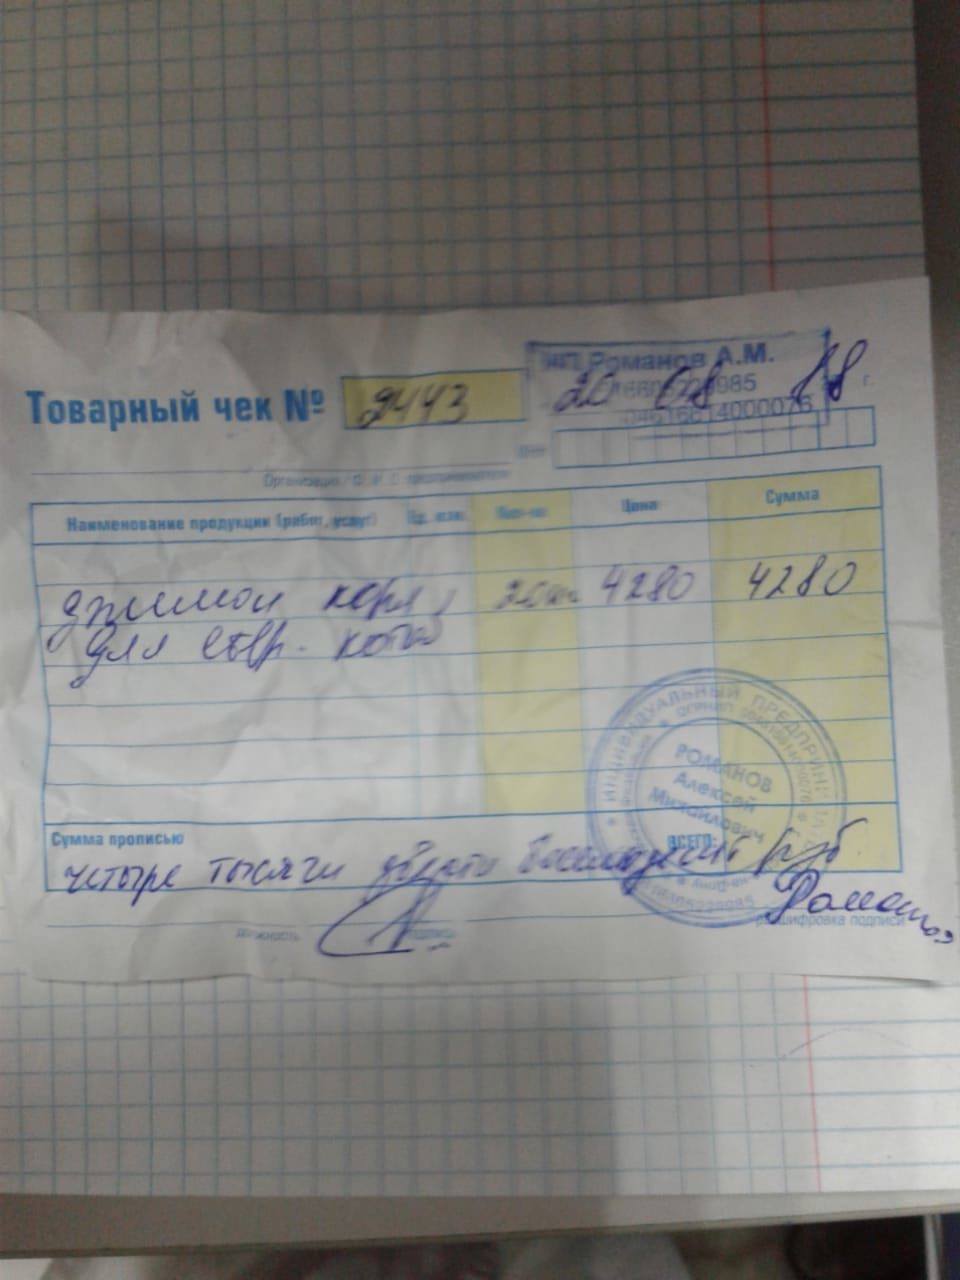 ИП Романов А.М.
Товарный чек № 2443 20 08 18 г.
04616814000076
ИНН
Организация / Ф. И. О. предпринимателя
Наименование продукции (работ, услуг) Ед. изм. Кол-во Цена Сумма
корм 4280 4280
для котов
Сумма прописью ВСЕГО:
четыре тысячи двести восемьдесят руб
Романов
должность подпись расшифровка подписи
ИНДИВИДУАЛЬНЫЙ ПРЕДПРИНИМАТЕЛЬ
ОГРНИП
РОМАНОВ
Алексей
Михайлович